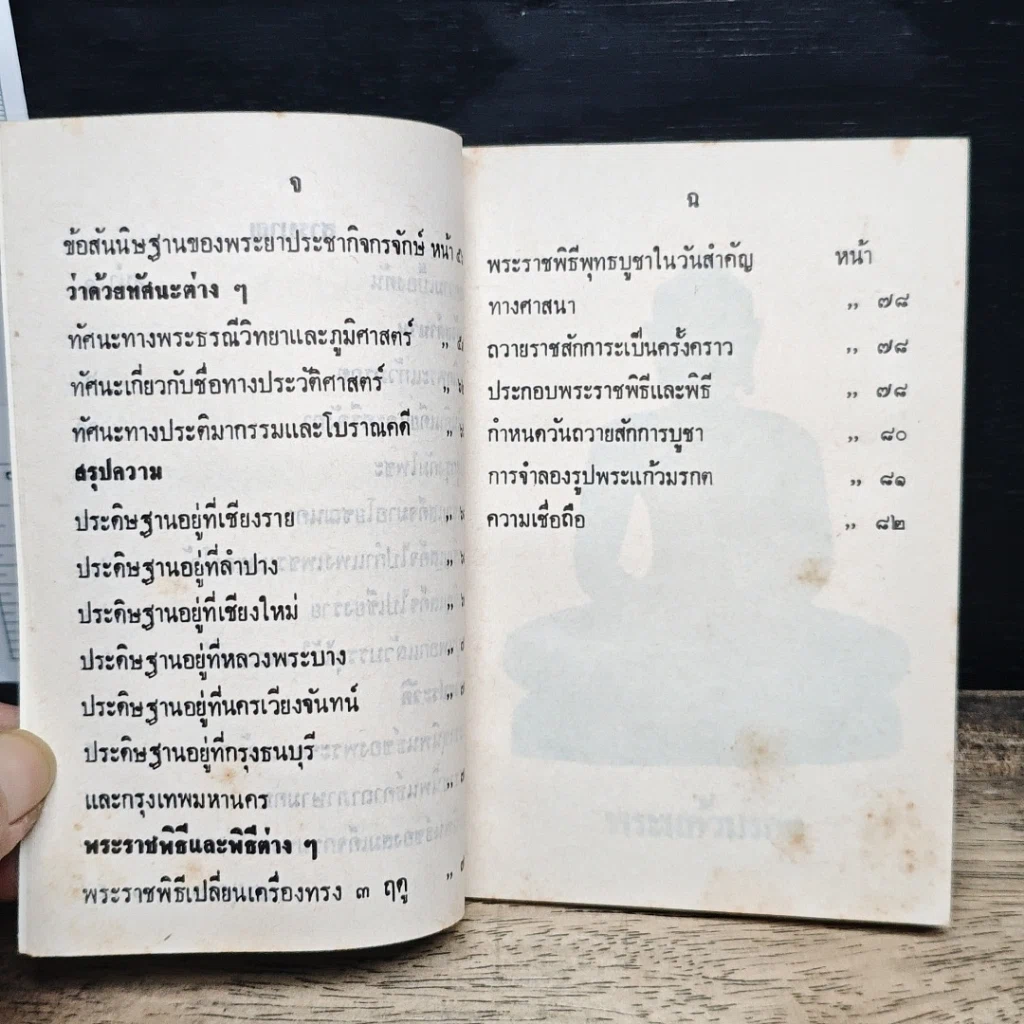 จ
ข้อสันนิษฐานของพระยาประชากิจกรจักษ์ หน้า
ว่าด้วยทัศนะต่าง ๆ
ทัศนะทางพระธรณีวิทยาและภูมิศาสตร์ ,,
ทัศนะเกี่ยวกับชื่อทางประวัติศาสตร์ ,,
ทัศนะทางประติมากรรมและโบราณคดี ,,
สรุปความ
ประดิษฐานอยู่ที่เชียงราย ,,
ประดิษฐานอยู่ที่ลำปาง ,,
ประดิษฐานอยู่ที่เชียงใหม่ ,,
ประดิษฐานอยู่ที่หลวงพระบาง ,,
ประดิษฐานอยู่ที่นครเวียงจันทน์ ,,
ประดิษฐานอยู่ที่กรุงธนบุรี
และกรุงเทพมหานคร ,,
พระราชพิธีและพิธีต่าง ๆ
พระราชพิธีเปลี่ยนเครื่องทรง ๓ ฤดู ,,
ฉ
พระราชพิธีพุทธบูชาในวันสำคัญ หน้า
ทางศาสนา ,, ๗๘
ถวายราชสักการะเป็นครั้งคราว ,, ๗๘
ประกอบพระราชพิธีและพิธี ,, ๗๘
กำหนดวันถวายสักการบูชา ,, ๘๐
การจำลองรูปพระแก้วมรกต ,, ๘๑
ความเชื่อถือ ,, ๘๒